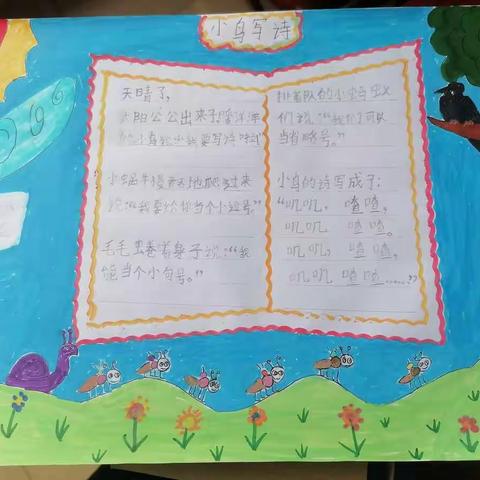 小鸟写诗
天晴了,
太阳公公出来了!暖洋洋
小鸟说:"我要写诗
小蜗牛慢慢地爬过来
说:"我要给你当个小逗号。"
毛毛虫卷着身子说:"我
能当个小句号。"
排着队的小蚂蚁
们说:"我们可以
当省略号。"
小鸟的诗写成了:
"叽叽, 喳喳,
叽叽 喳喳。
叽叽, 喳喳,
叽叽 喳喳……?"